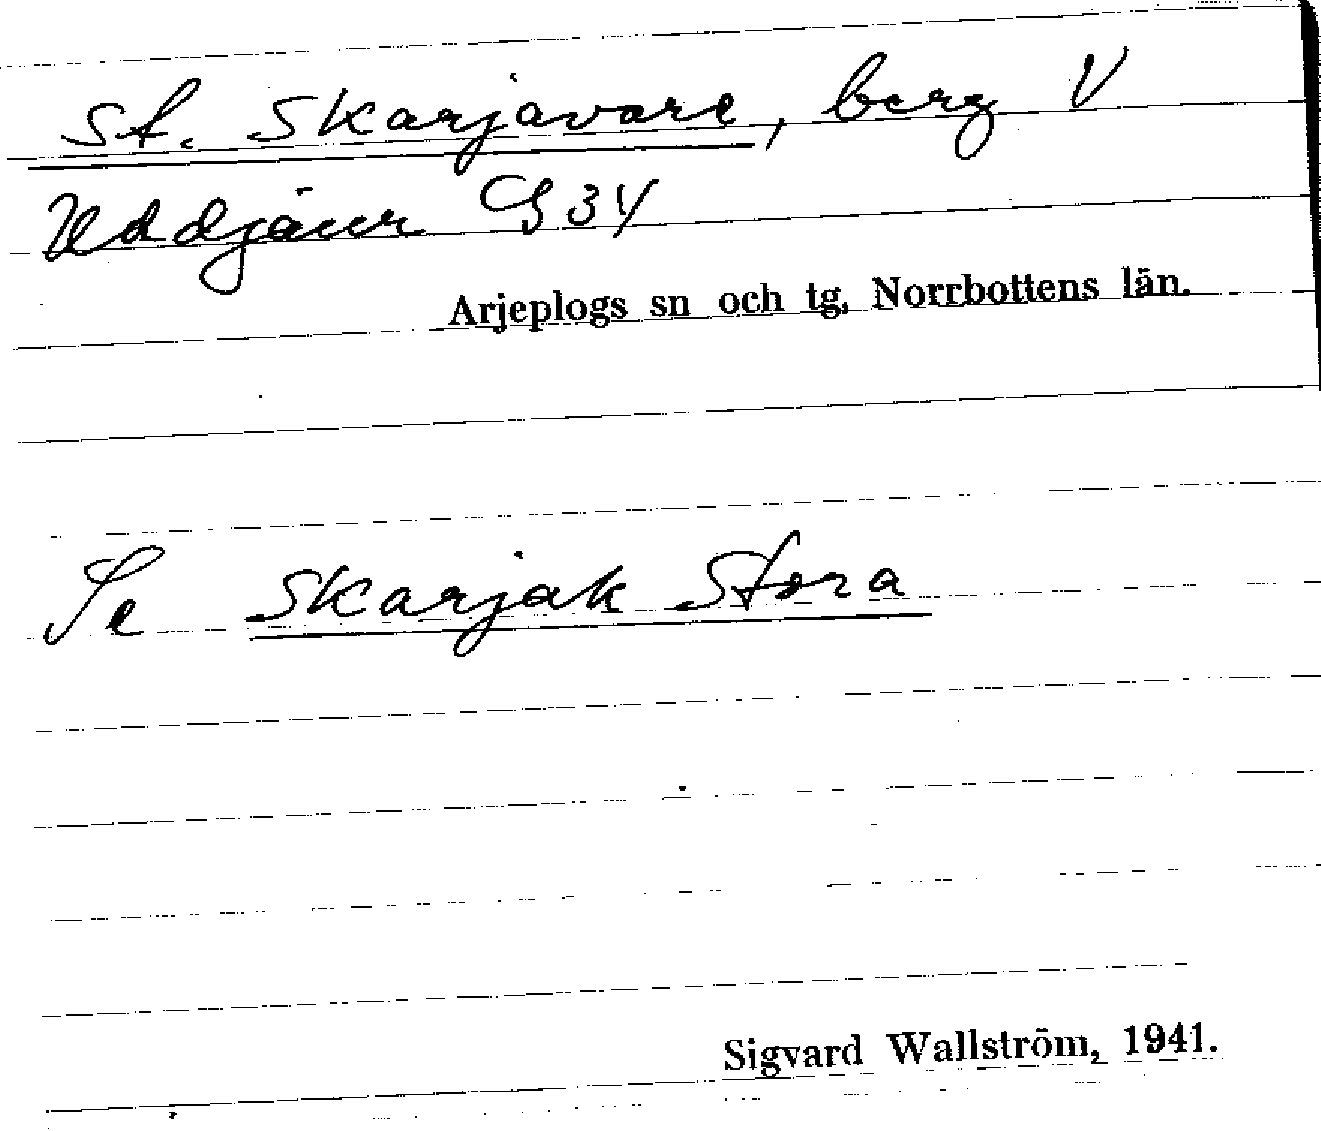 St. Skarjavare, berg V
Uddjaur G34
Arjeplogs sn och tg, Norrbottens län.
Se Skarjak Stora
Sigvard Wallström, 1941.